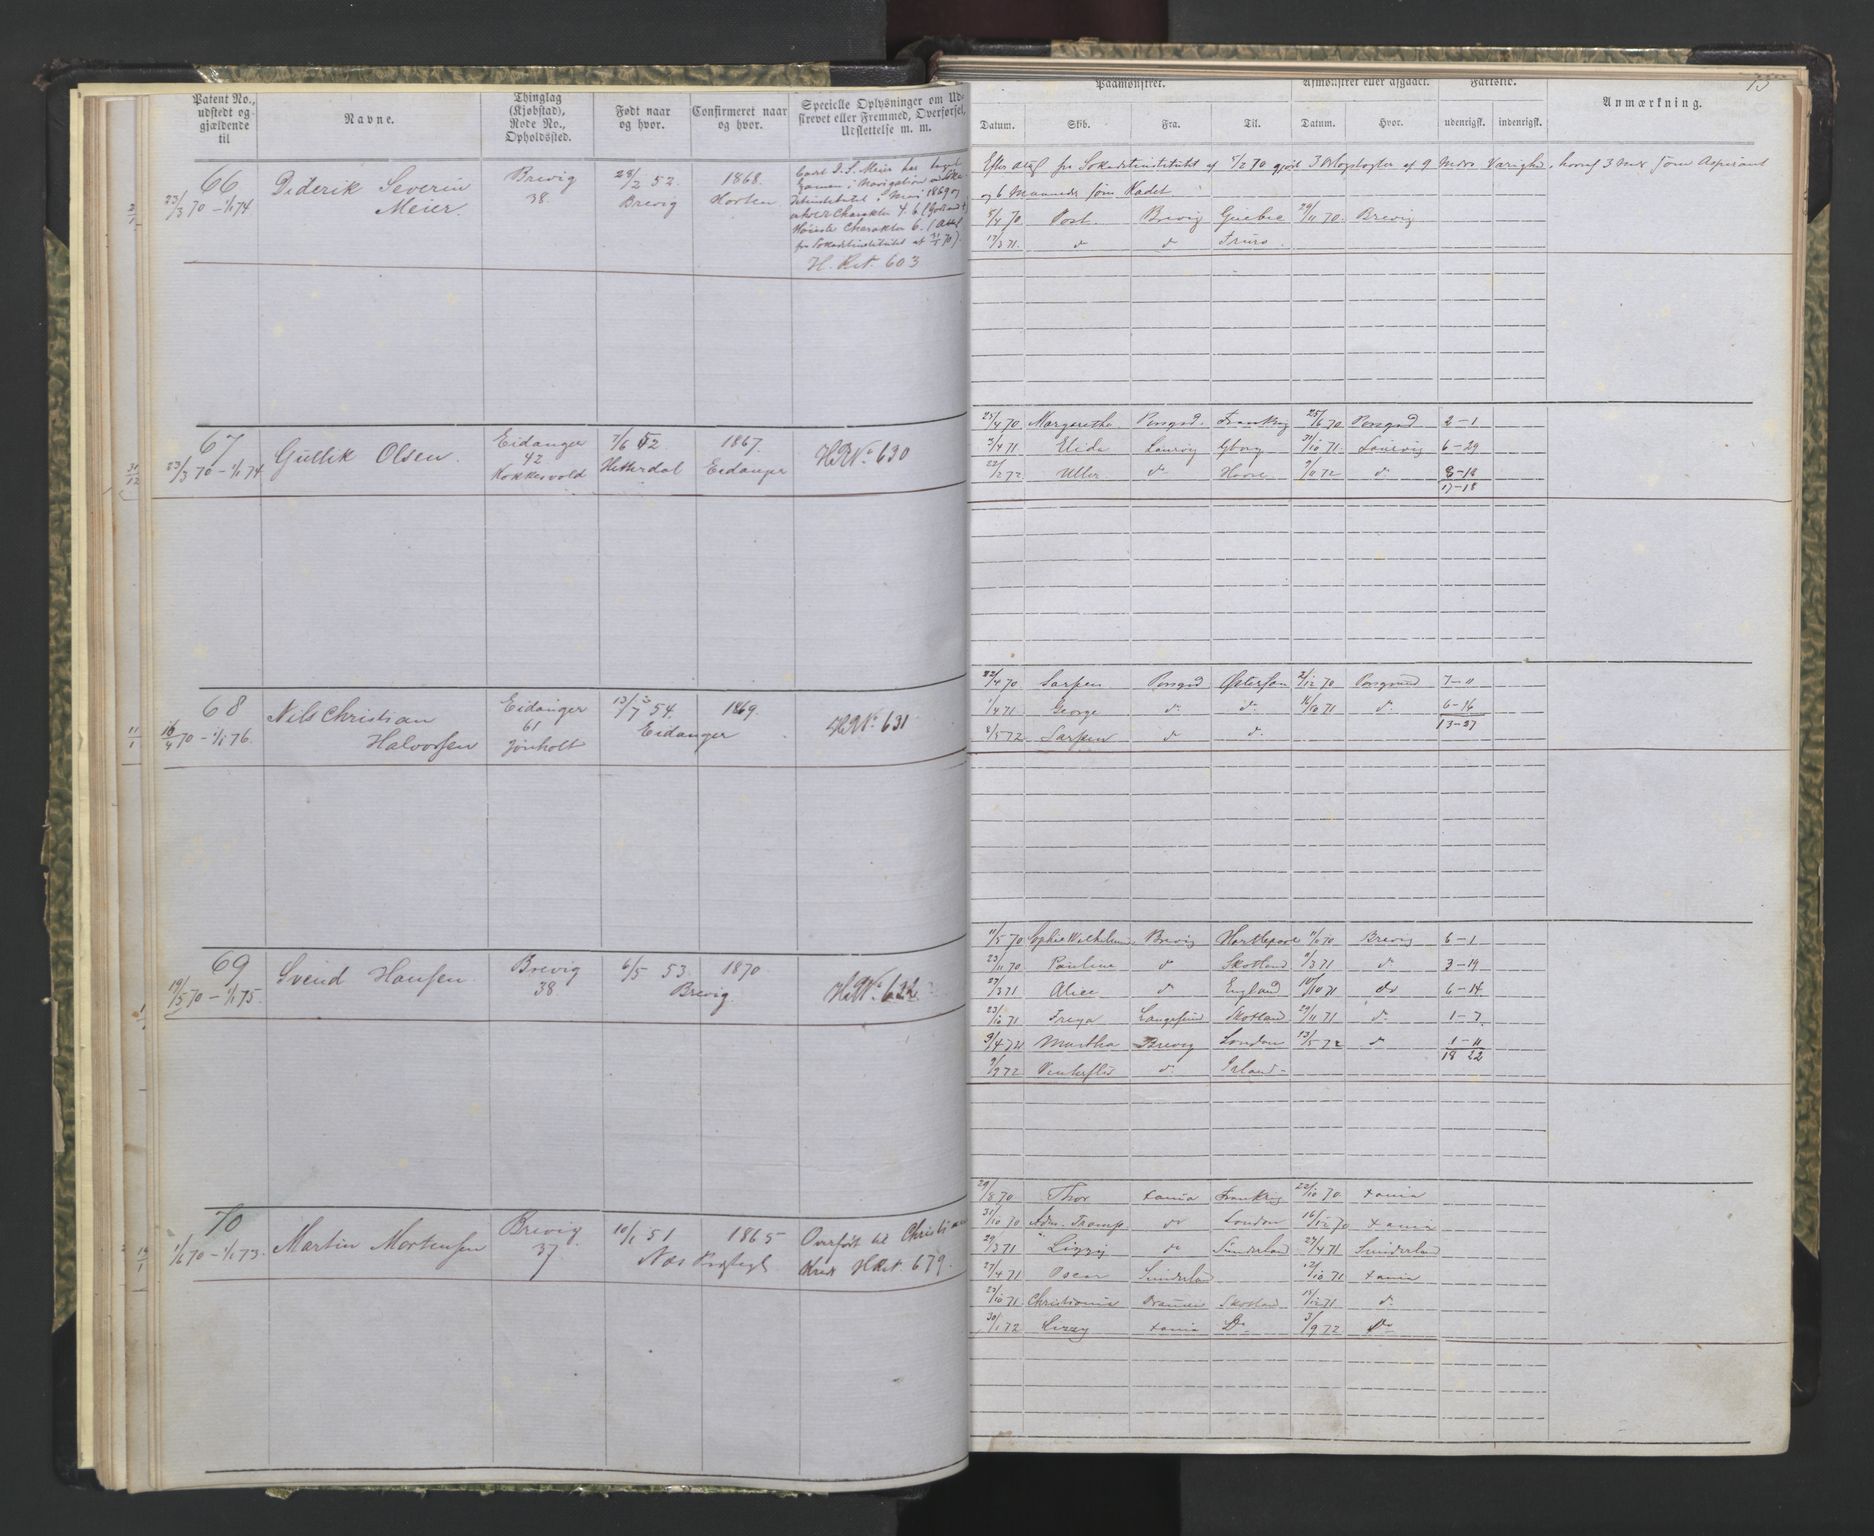 Patent No., udstedt og gjældende til
Navne.
Thinglag (Kjøbstad), Rode No., Opholdssted.
Født naar og hvor.
Confirmeret naar og hvor.
Specielle Oplysninger om Udskrevet eller Fremmed, Overførsel, Udslettelse m. m.
Paamønstret.
Afmønstret eller afgaaet.
Fartstid.
Anmærkning.
15
Datum. Skib. Fra. Til. Datum. Hvor. udenrigsk. indenrigsk.
66
23/3 70 – 1/1 74
Diderik Severin
Meier.
Brevig
38.
28/2 52.
Brevig
1868.
Horten
Carl D. S. Meier har taget
Examen i Navigation
i Mai 1869 og
Høieste Charakter 6. (Att
fra Søkadetinstitutet af 31/1 70).
H. Rul. 603
Efter Att fra Søkadetinstitutet af 7/2 70 gjort 3 Orlogstogter af 9 Mdrs Varighed, hvoraf 3 Md som Aspirant
og 6 Maaneder som Kadet
Post Brevig Quebec 29/11 70 Brevig
17/3 71. d d Truro.
67
23/3 70 – 1/1 74
Gullik Olsen.
Eidanger
42
Kokkesvold
7/6 52
Hitterdal
1867.
Eidanger
HRNo. 630
25/4 70 Margarethe Porsgrd. Frankrig 25/6 70 Porsgrd 2–1
3/4 71 Laurvig 31/10 71 Laurvig 6–29
22/2 72 Uller d. 9/11 72 d. 8–18
17–18
68
16/4 70 – 1/1 76.
Nils Christian
Halvorsen
Eidanger
61
Jønholt
13/7 54.
Eidanger
1869.
HRNo. 631
22/4 70 Sarpen Porsgrd Østersøen 2/12 70 Porsgrund 7–11
1/4 71 George d. d. 14/10 71 d. 6–16
13–27
8/5 72 Sarpen d d.
69
19/5 70 – 1/1 75.
Svend Hansen
Brevig
38.
6/5 53.
1870
Brevig.
HRNo. 632
11/5 70 Sophie Wilhelmine Brevig Hartlepool Brevig 6–1
23/11 70 Pauline d Skotland 9/3 71 d. 3–19
27/3 71 Alice d England 10/10 71 do 6–14
23/10 71 Freya Langesund Skotland 29/11 71 d. 1–7
9/4 72 Martha Brevig London 13/5 72 d 1–11
18 22
9/9 72 d. Irland
70
1/6 70 – 1/1 73.
Martin Mortensen
Brevig
37
10/1 51
1865
Næs Prgjeld
Overført til Christian
Krds HRul. 679.
29/8 70 Thor Xania Frankrig 22/10 70. Xania
31/10 70 Adm. Tromp do London 16/12 70 Xania
29/3 71 Lizzy do Sunderland 27/4 71 Sunderland
27/4 71 Oscar Sunderland 12/10 71 Xania
23/10 71 Christiania Drammen Skotland 15/12 71 d.
30/1 72 Lizzy Xania Do 3/9 72 Do